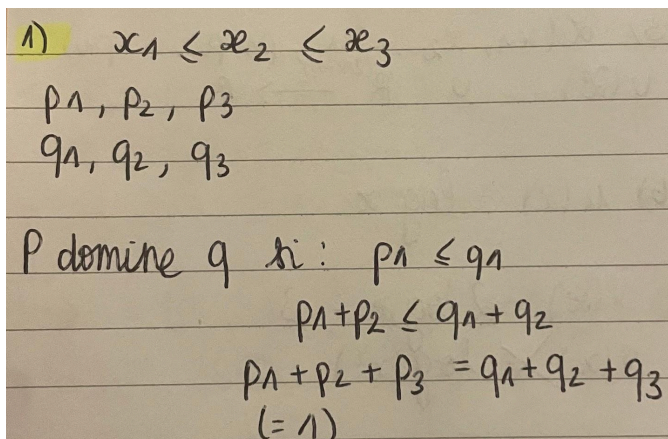 1) x1 ≤ x2 ≤ x3
p1, p2, p3
q1, q2, q3
P domine q si : p1 ≤ q1
p1+p2 ≤ q1+q2
p1+p2+p3 = q1+q2+q3
(=1)